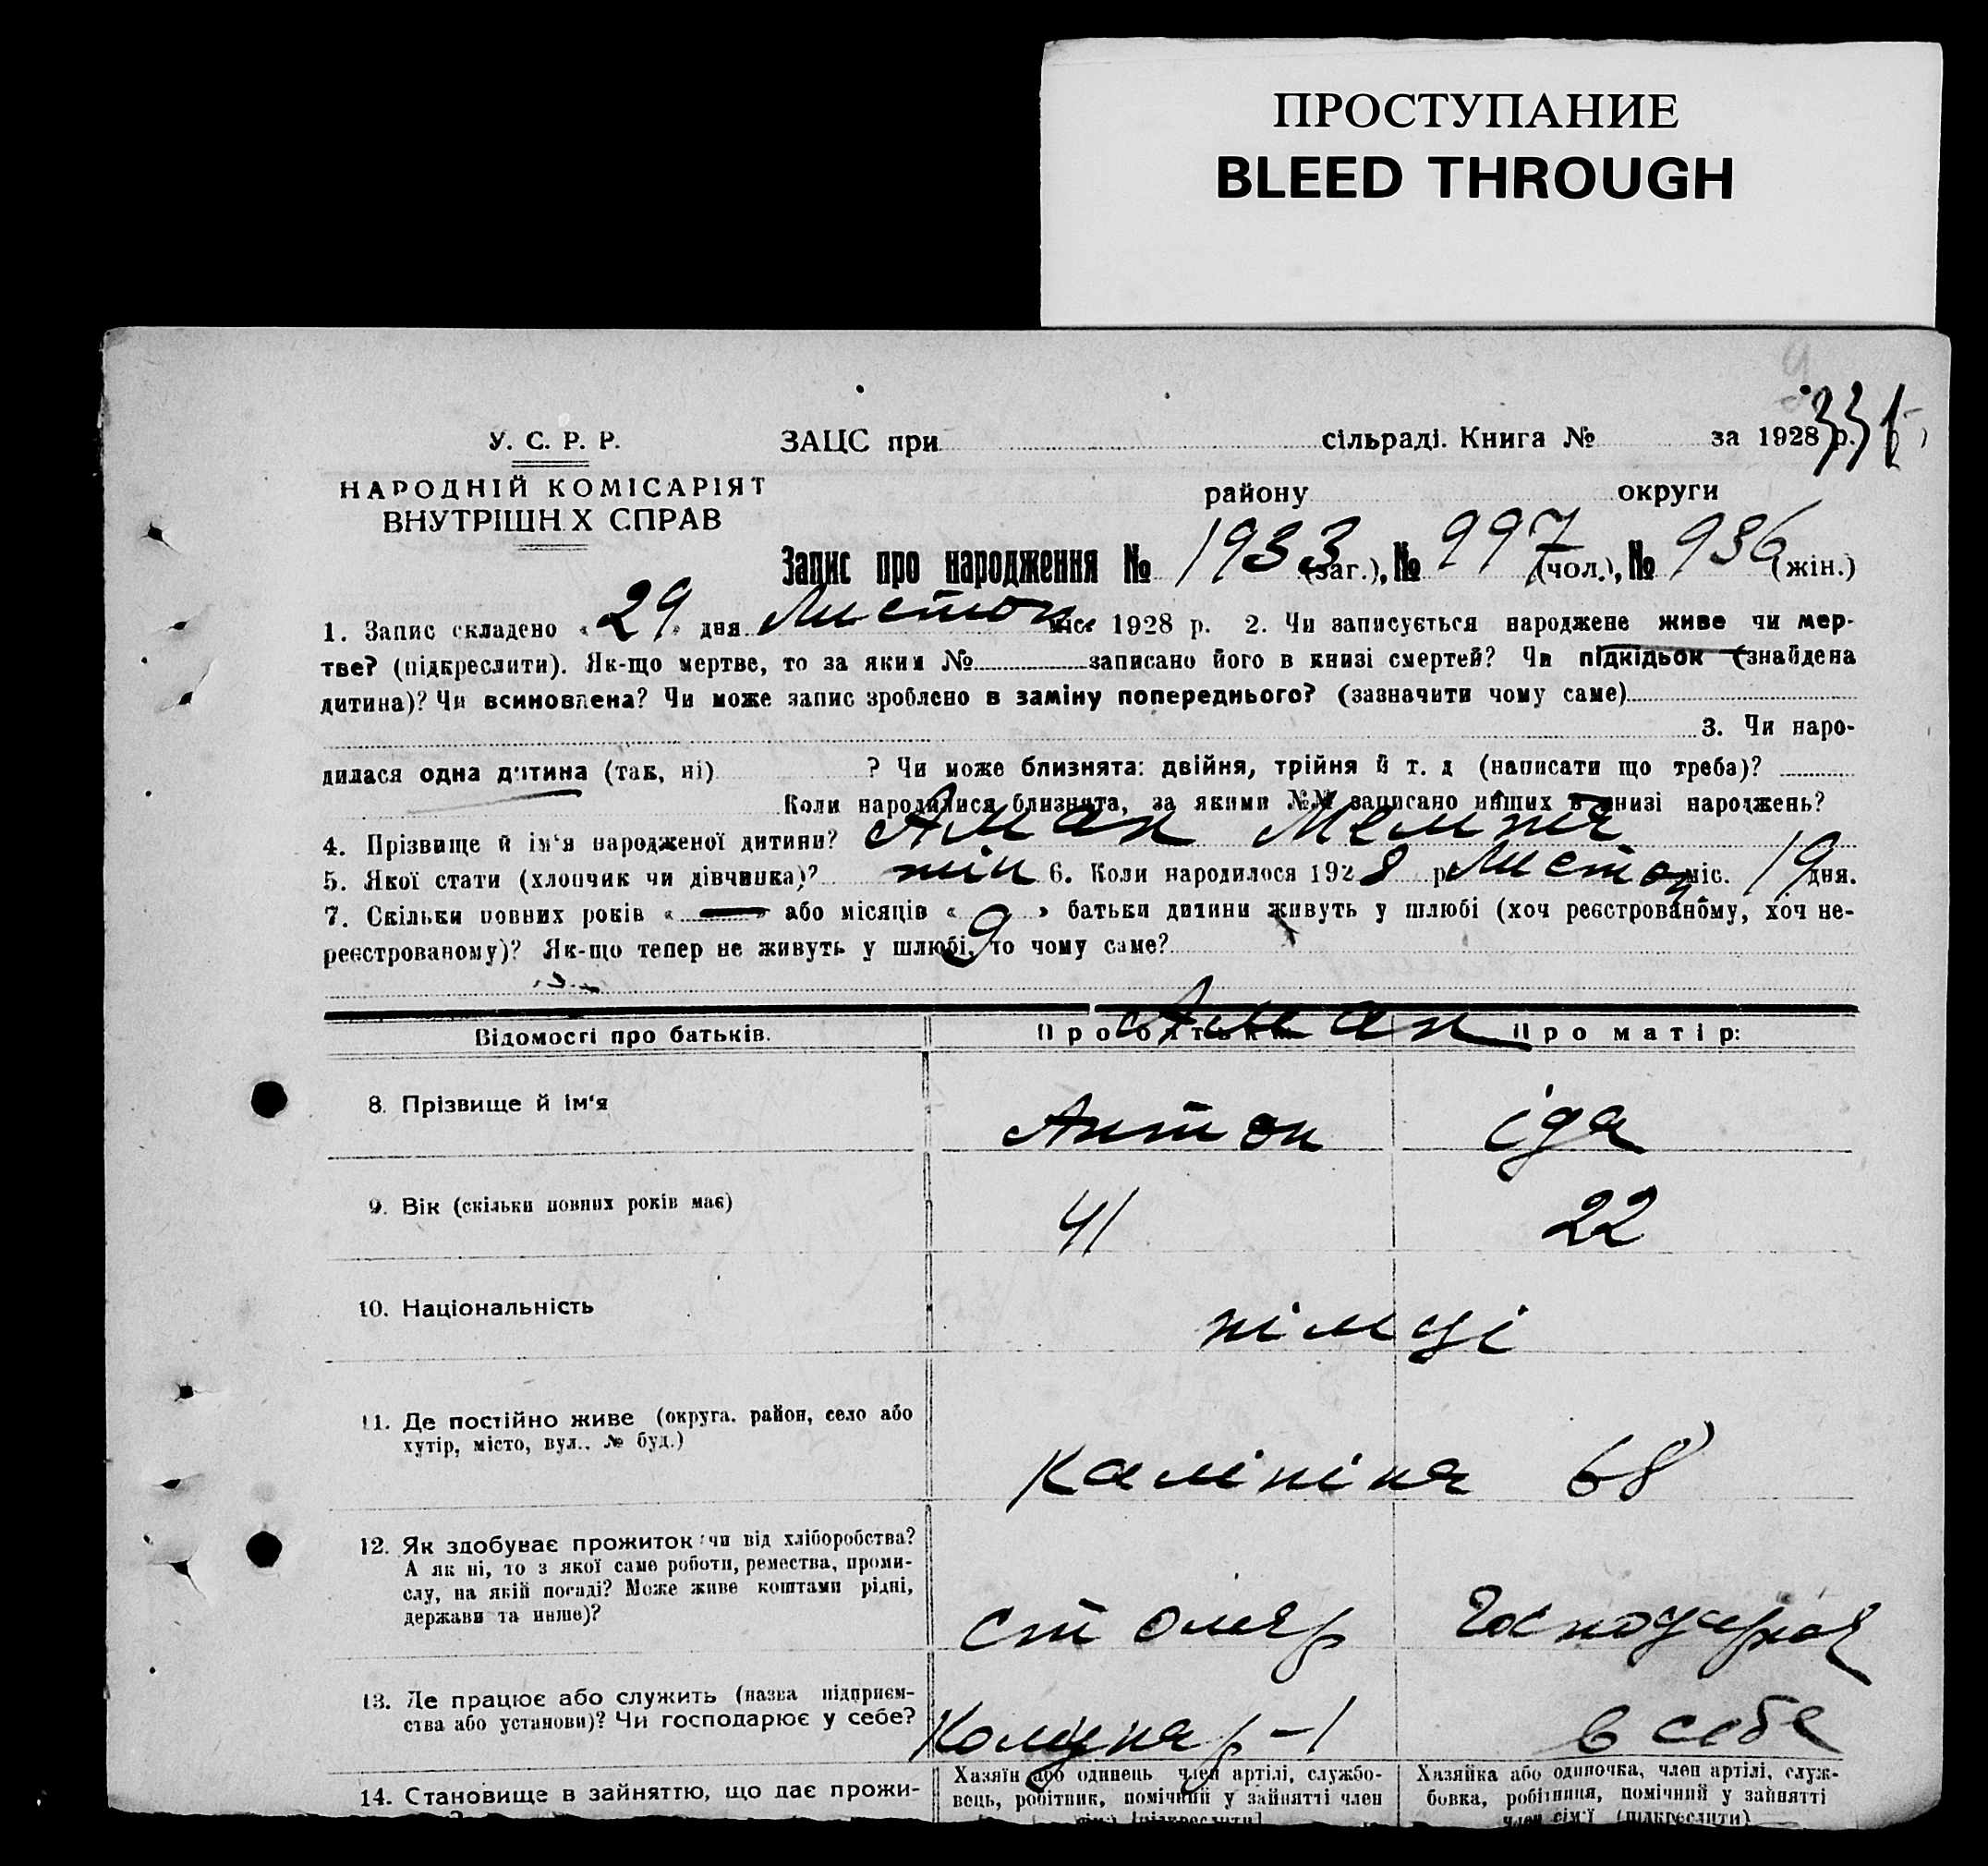 ПРОСТУПАНИЕ
BLEED THROUGH
335
У. С. Р. Р.
ЗАЦС при сільраді. Книга № за 1928 р.
НАРОДНІЙ КОМІСАРІЯТ
ВНУТРІШН Х СПРАВ
району округи
Запис про народження № 1933 (заг.), № 997 (чол.), № 936 (жін.)
1. Запис складено « 29 » дня Листоп міс. 1928 р. 2. Чи записується народжене живе чи мер-
тве? (підкреслити). Як-що мертве, то за яким № записано його в книзі смертей? Чи підкідьок (знайдена
дитина)? Чи всиновлена? Чи може запис зроблено в заміну попереднього? (зазначити чому саме)
3. Чи наро-
дилася одна дитина (так, ні) ? Чи може близнята: двійня, трійня й т. д (написати що треба)?
Коли народилися близнята, за якими №№ записано инших в книзі народжень?
4. Прізвище й ім'я народженої дитини? Аман
5. Якої стати (хлопчик чи дівчинка)? жін 6. Коли народилося 1928 р Листоп міс. 19 дня.
7. Скільки повних років « — » або місяців « 9 » батьки дитини живуть у шлюбі (хоч реєстрованому, хоч не-
реєстрованому)? Як-що тепер не живуть у шлюбі, то чому саме?
Відомості про батьків. Про батька: Про матір:
Аман
8. Прізвище й ім'я Антон Іда
9. Вік (скільки повних років має) 41 22
10. Національність німці
11. Де постійно живе (округа. район, село або
хутір, місто, вул.. № буд.)
Калініна 68
12. Як здобуває прожиток: чи від хліборобства?
А як ні, то з якої саме роботи, ремества, проми-
слу, на якій посаді? Може живе коштами рідні,
держави та инше)?
столяр Господарка
13. Де працює або служить (назва підприєм-
ства або установи)? Чи господарює у себе?
Комунар-1 в себе
14. Становище в зайняттю, що дає прожи-
Хазяїн або одинець член артілі, службо-
вець, робітник, помічний у зайнятті член
Хазяйка або одиночка, член артілі, служ-
бовка, робітниця, помічний у зайнятті
член сім'ї (підкреслити)